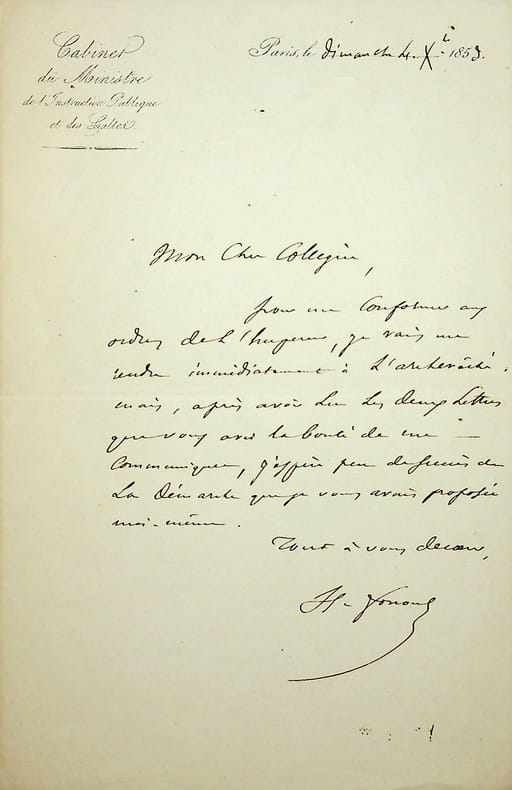 Cabinet
du Ministre
de l'Instruction Publique
et des Cultes.
Paris, le dimanche 4. Xb 1853.
Mon Cher Collègue,
pour me Conformer aux
ordres de L'Empereur, je vais me
rendre immédiatement à L'archevêché.
mais, après avoir Lu Les deux Lettres
que vous avez la bonté de me
Communiquer, j'espère peu de succès de
La Démarche que je vous avais proposée
moi-même.
Tout à vous de cœur,
H. Fortoul